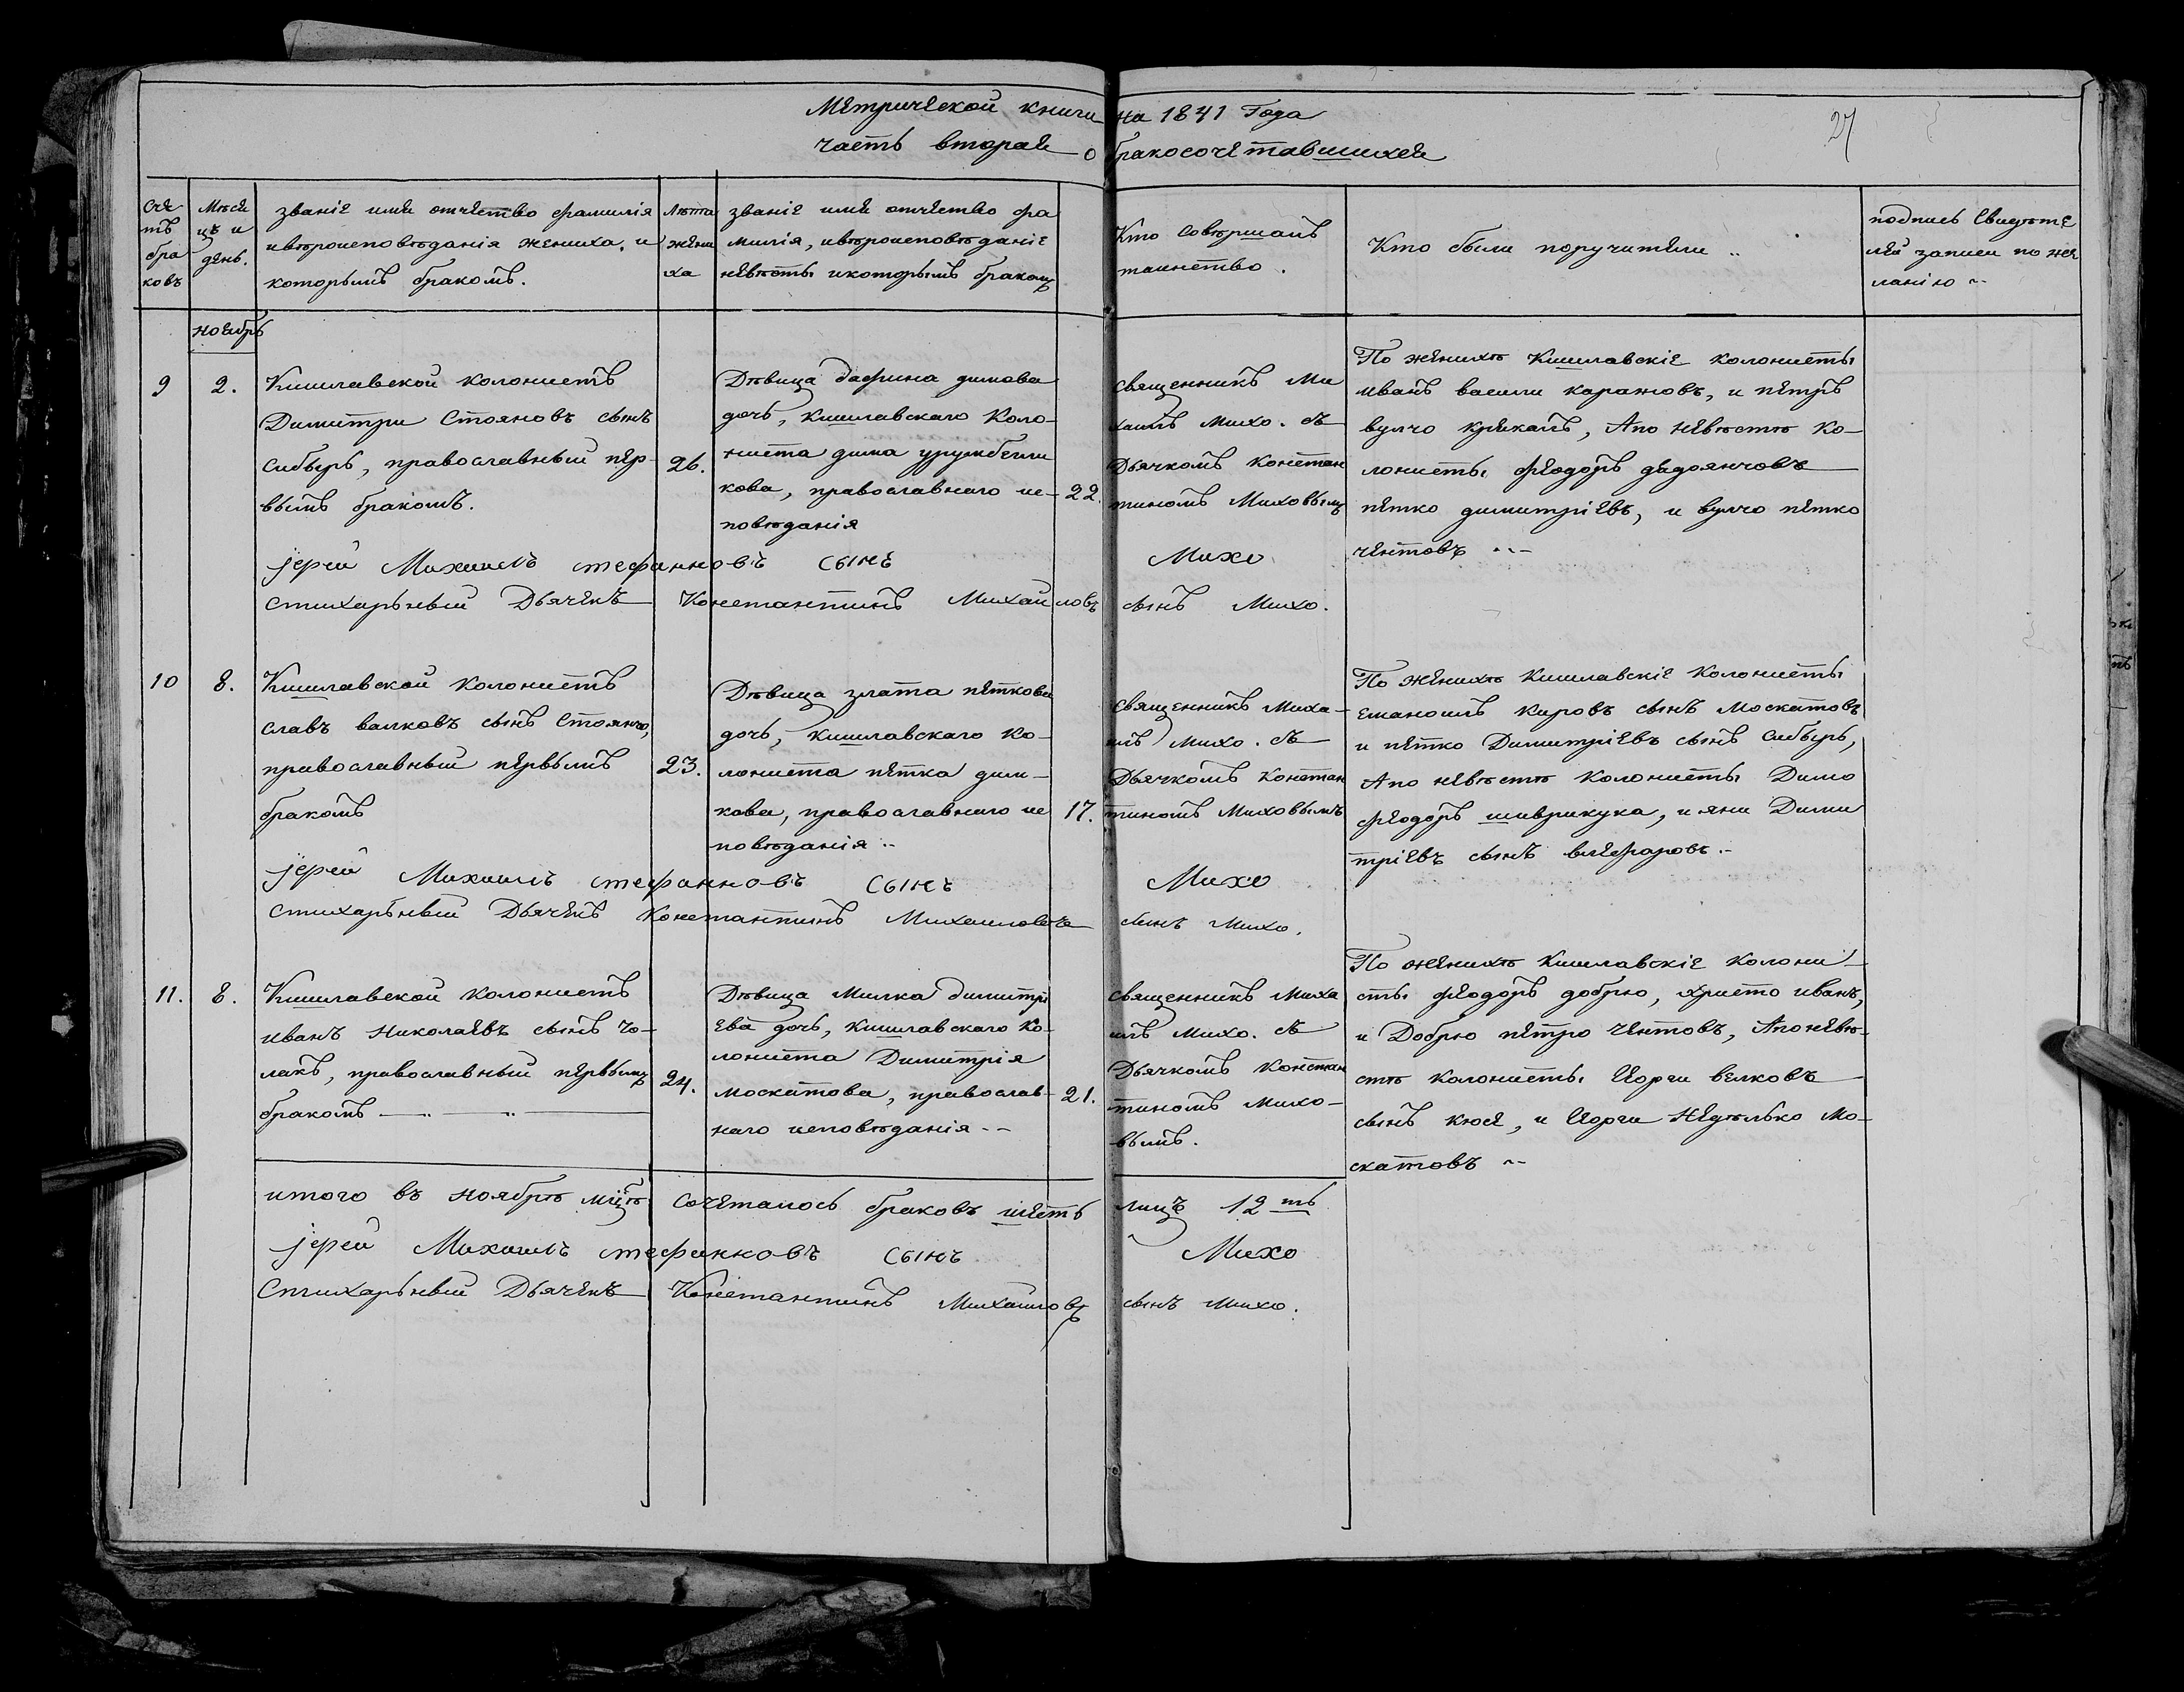 Метрической книги на 1841 Года
27
Часть вторая о бракосочетавшихся
Сче
тъ
бра
ковъ
Мѣся
цъ и
день.
званіе имя отчество фамилія
ивѣроисповѣданія жениха, и
которымъ бракомъ.
Лѣта
жени
ха
званіе имя отчество фа
милія, ивѣроисповѣданіе
невѣсты икоторымъ бракомъ
Кто Совѣршалъ
таинство.
Кто были поручители
подпись Свидѣте
лей записи по же
ланію
ноябрь
9
2.
Кишлавской колонистъ
Димитри Стояновъ сынъ
сибыръ, православный пер-
вымъ бракомъ.
26.
Дѣвица дафина димова
дочь, кишлавскаго Коло-
ниста дима
кова, православнаго ис-
повѣданія
22.
священникъ Ми
хаилъ Михо. съ
Дьячкомъ констан
тиномъ Миховымъ
По женихѣ Кишлавскіе колонисты
иванъ васили каражовъ, и петръ
вулчо крекалъ, Апо невѣстѣ Ко-
лонисты феодоръ дядоянчовъ
петко димитріевъ, и вулчо петко
чентовъ
іерей Михаилъ стефанновъ сынъ Михо
Стихарьный Дьячекъ Константинъ Михайловъ сынъ Михо.
10
8.
Кишлавской Колонистъ
славъ валковъ сынъ Стоянчо,
православный первымъ
бракомъ
23.
Дѣвица злата петкова
дочь, кишлавскаго ко-
лониста петка дим-
кова, православнаго ис
повѣданія
17.
священникъ Миха-
илъ Михо. съ
Дьячкомъ констан
тиномъ Миховымъ
По женихѣ Кишлавскіе Колонисты
Еманоилъ Кировъ сынъ Москатовъ
и петко Димитріевъ сынъ Сибыръ,
Апо невѣстѣ Колонисты Димо
феодоръ шаврикука, и яни Дими
тріевъ сынъ
іерей Михаилъ стефанновъ сынъ Михо
Стихарьный Дьячекъ Константинъ Михаиловъ сынъ Михо.
11.
8.
Кишлавской колонистъ
иванъ Николаевъ сынъ чо-
лакъ, православный первымъ
бракомъ
24.
Дѣвица Милка димитрі
ева дочь, кишлавскаго Ко-
лониста Димитрія
москатова, православ-
наго исповѣданія
21.
священникъ Миха
илъ Михо. съ
Дьячкомъ Констан
тиномъ Михо-
вымъ.
По женихѣ Кишлавскіе Колони-
сты феодоръ добрю, христо иванъ,
и Добрю петро Чентовъ, Апоневѣ-
стѣ Колонисты Иорги велковъ
сынъ кюся, и Иорги Недѣлько Мо-
скатовъ
итого въ ноябрѣ мцѣ сочеталось браковъ шесть лицъ 12 ть
іерей Михаилъ стефанновъ сынъ Михо
Стихарьный Дьячекъ Константинъ Михаиловъ сынъ Михо.